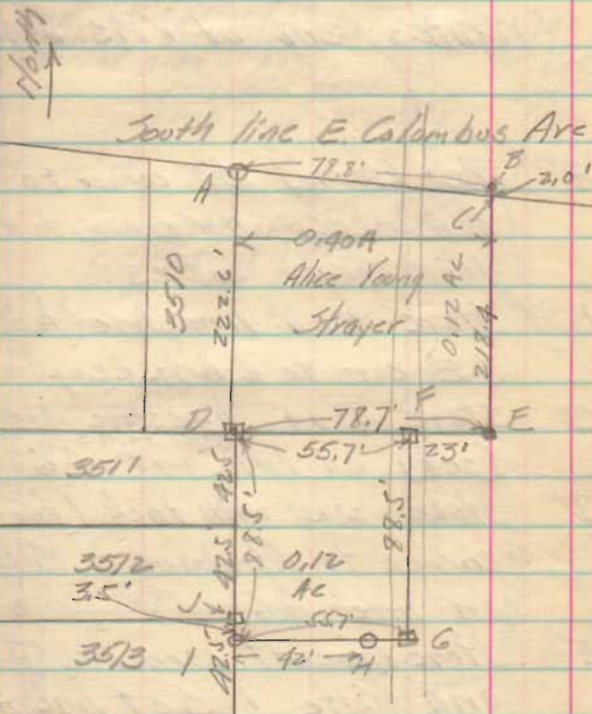 North
South line E. Columbus Ave
A
79.8'
B
2.0'
C
0.40A
3510
222.6'
Alice Young
Strayer
0.12 Ac
217.4
D
78.7'
F
E
55.7'
23'
3511
42.5
88.5'
88.5'
3512
42.5'
0.12
Ac
3.5'
J
55.7'
G
3513
I
42.5'
42'
H